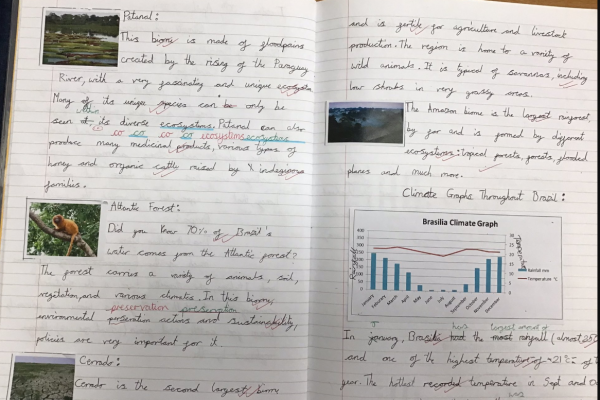 Patanal:
This biomy is made of floodpains
created by the rising of the Paraguay
River, with a very fassinatiy and unique ecosystm
Many of its unique species can be only be
seen at its diverse ecosystems. Patanal can also
co co co co ecosystems ecosystems
produce many medicinal products, various types of
honey and organic cattly raised by indegious
families.
Atlantic Forest:
Did you know 70% of Brazil's
water comes from the Atlantic forest?
The forest carrus a variety of animals, soil,
vegitation, and various climates. In this biomy
preservation preservation
enviromental preseration actions and sustainability,
policies are very important for it.
Cerrado:
Cerrado is the second largest biomy
and is fertile for agriculture and livestock
production. The region is home to a variety of
wild animals. It is typical of savannas, including
low shrubs in very grassy areas.
The Amazon biome is the largest rainforest,
by far and is formed by different
ecosystems: Tropical forests, forests, flooded
planes and much more.
Climate Graphs Throughout Brazil:
Brasilia Climate Graph
400
350
300
250
200
150
100
50
0
35
30
25
20
15
10
5
0
Rainfall
January
February
March
April
May
June
July
August
September
October
November
December
Rainfall mm
Temperature °C
J has largest amount of
In january, Brasilia had the most rainfall (almost 250
and one of the highest temperature of ~21°C of th
year. The hottest recorded temperature in Sept and Oc